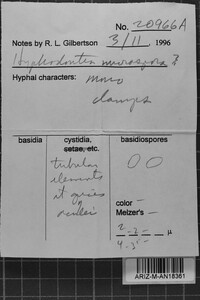 No. 20966A
Notes by R. L. Gilbertson 3/11, 1996
Hyphodontia
Hyphal characters: mono
clamps
basidia
cystidia, setae, etc.
basidiospores
tubular
elements
at apices
of
color –
Melzer's –
µ
ARIZ-M-AN18361